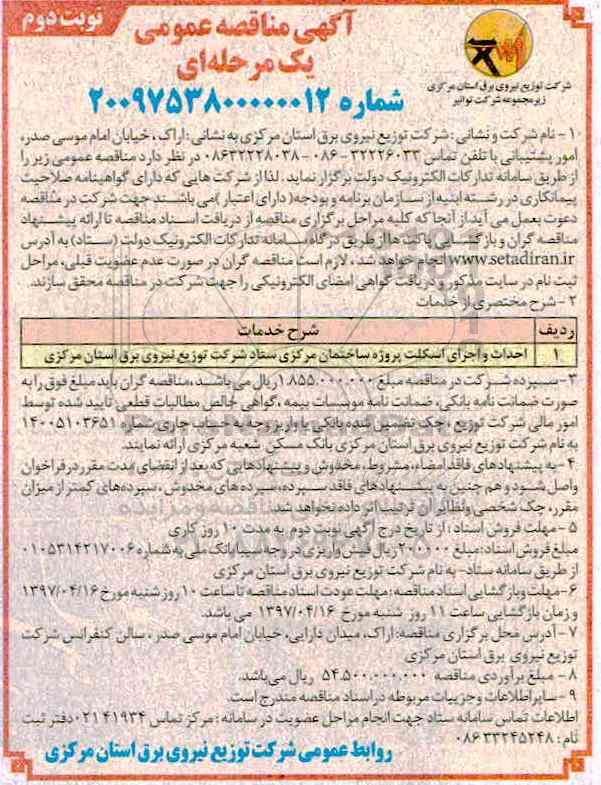 نوبت دوم
آگهی مناقصه عمومی
یک مرحله‌ای
شماره ۲۰۰۹۷۵۳۸۰۰۰۰۰۰۱۲
شرکت توزیع نیروی برق استان مرکزی
زیرمجموعه شرکت توانیر
۱- نام شرکت و نشانی: شرکت توزیع نیروی برق استان مرکزی به نشانی: اراک، خیابان امام موسی صدر،
امور پشتیبانی با تلفن تماس ۳۲۲۲۶۰۳۳-۰۸۶ - ۰۸۶۳۲۲۲۸۰۳۸ در نظر دارد مناقصه عمومی زیر را
از طریق سامانه تدارکات الکترونیک دولت برگزار نماید. لذا از شرکت هایی که دارای گواهینامه صلاحیت
پیمانکاری در رشته ابنیه از سازمان برنامه و بودجه( دارای اعتبار )می باشند جهت شرکت در مناقصه
دعوت بعمل می آید.از آنجا که کلیه مراحل برگزاری مناقصه از دریافت اسناد مناقصه تا ارائه پیشنهاد
مناقصه گران و بازگشایی پاکت ها از طریق درگاه سامانه تدارکات الکترونیک دولت (ستاد) به آدرس
www.setadiran.ir انجام خواهد شد، لازم است مناقصه گران در صورت عدم عضویت قبلی، مراحل
ثبت نام در سایت مذکور و دریافت گواهی امضای الکترونیکی را جهت شرکت در مناقصه محقق سازند.
۲- شرح مختصری از خدمات
ردیف شرح خدمات
۱ احداث و اجرای اسکلت پروژه ساختمان مرکزی ستاد شرکت توزیع نیروی برق استان مرکزی
۳- سپرده شرکت در مناقصه مبلغ ۱.۸۵۵.۰۰۰.۰۰۰ ریال می باشند،مناقصه گران باید مبلغ فوق را به
صورت ضمانت نامه بانکی، ضمانت نامه موسسات بیمه ،گواهی خالص مطالبات قطعی تایید شده توسط
امور مالی شرکت توزیع ، چک تضمین شده بانکی یا واریز وجه به حساب جاری شماره ۱۴۰۰۵۱۰۳۶۵۱
به نام شرکت توزیع نیروی برق استان مرکزی بانک مسکن شعبه مرکزی ارائه نمایند.
۴- به پیشنهادهای فاقد امضاء، مشروط، مخدوش و پیشنهادهایی که بعد از انقضای مدت مقرر در فراخوان
واصل شود و هم چنین به پیشنهادهای فاقد سپرده، سپرده های مخدوش ، سپرده های کمتر از میزان
مقرر، چک شخصی ونظائر آن ترتیب اثر داده نخواهد شد.
۵- مهلت فروش اسناد : از تاریخ درج آگهی نوبت دوم به مدت ۱۰ روز کاری
مبلغ فروش اسناد: مبلغ ۲۰۰۰۰۰ ریال فیش واریزی در وجه سیبا بانک ملی به شماره ۰۱۰۵۳۱۴۲۱۷۰۰۶
از طریق سامانه ستاد- به نام شرکت توزیع نیروی برق استان مرکزی
۶- مهلت وبازگشایی اسناد مناقصه: مهلت عودت اسناد مناقصه تا ساعت ۱۰ روز شنبه مورخ ۱۳۹۷/۰۴/۱۶
و زمان بازگشایی ساعت ۱۱ روز شنبه مورخ ۱۳۹۷/۰۴/۱۶ می باشد.
۷- آدرس محل برگزاری مناقصه: اراک، میدان دارایی، خیابان امام موسی صدر ، سالن کنفرانس شرکت
توزیع نیروی برق استان مرکزی
۸- مبلغ برآوردی مناقصه ۵۴.۵۰۰.۰۰۰.۰۰۰ ریال می‌باشد.
۹- سایر اطلاعات و جزییات مربوطه در اسناد مناقصه مندرج است.
اطلاعات تماس سامانه ستاد جهت انجام مراحل عضویت در سامانه : مرکز تماس ۴۱۹۳۴-۰۲۱ دفتر ثبت
نام : ۰۸۶۳۳۲۴۵۲۴۸
روابط عمومی شرکت توزیع نیروی برق استان مرکزی